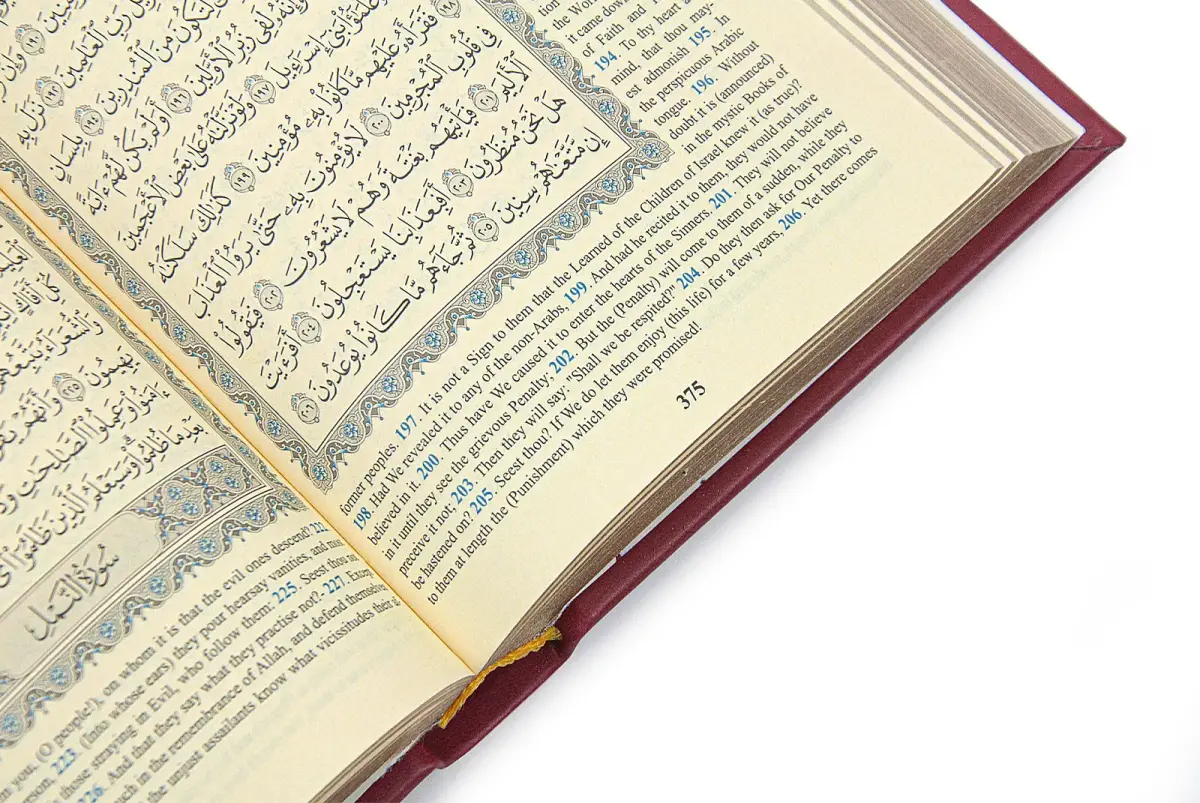 رَبِّ ٱلْعَٰلَمِينَ ١٩٢ نَزَلَ بِهِ
لِتَكُونَ مِنَ ٱلْمُنذِرِينَ ١٩٤ بِلِسَانٍ
لَفِى زُبُرِ ٱلْأَوَّلِينَ ١٩٦ أَوَلَمْ يَكُن لَّهُمْ ءَايَةً
بَنِىٓ إِسْرَٰٓءِيلَ ١٩٧ وَلَوْ نَزَّلْنَٰهُ عَلَىٰ بَعْضِ ٱلْأَعْجَمِينَ
١٩٨ فَقَرَأَهُۥ عَلَيْهِم مَّا كَانُوا۟ بِهِۦ مُؤْمِنِينَ ١٩٩ كَذَٰلِكَ سَلَكْنَٰهُ
فِى قُلُوبِ ٱلْمُجْرِمِينَ ٢٠٠ لَا يُؤْمِنُونَ بِهِۦ حَتَّىٰ يَرَوُا۟ ٱلْعَذَابَ
ٱلْأَلِيمَ ٢٠١ فَيَأْتِيَهُم بَغْتَةً وَهُمْ لَا يَشْعُرُونَ ٢٠٢ فَيَقُولُوا۟
هَلْ نَحْنُ مُنظَرُونَ ٢٠٣ أَفَبِعَذَابِنَا يَسْتَعْجِلُونَ ٢٠٤ أَفَرَءَيْتَ
إِن مَّتَّعْنَٰهُمْ سِنِينَ ٢٠٥ ثُمَّ جَآءَهُم مَّا كَانُوا۟ يُوعَدُونَ ٢٠٦
it came down
of Faith and
194. To thy heart a
mind, that thou may-
est admonish 195. In
the perspicuous Arabic
tongue. 196. Without
doubt it is (announced)
in the mystic Books of
former peoples. 197. It is not a Sign to them that the Learned of the Children of Israel knew it (as true)?
198. Had We revealed it to any of the non-Arabs, 199. And had he recited it to them, they would not have
believed in it. 200. Thus have We caused it to enter the hearts of the Sinners. 201. They will not believe
in it until they see the grievous Penalty; 202. But the (Penalty) will come to them of a sudden, while they
perceive it not; 203. Then they will say: "Shall we be respited?" 204. Do they then ask for Our Penalty to
be hastened on? 205. Seest thou? If We do let them enjoy (this life) for a few years, 206. Yet there comes
to them at length the (Punishment) which they were promised!
375
يَهِيمُونَ ٢٢٥ وَأَنَّهُمْ
ءَامَنُوا۟ وَعَمِلُوا۟ ٱلصَّٰلِحَٰتِ
بَعْدِ مَا ظُلِمُوا۟ وَسَيَعْلَمُ ٱلَّذِينَ ظَلَمُوٓا۟
سُورَةُ ٱلنَّمْلِ
you, (O people!), on whom it is that the evil ones descend?
223. (Into whose ears) they pour hearsay vanities, and
those straying in Evil, who follow them: 225. Seest thou
226. And that they say what they practise not?. 227. Except
in the remembrance of Allah, and defend themselves
the unjust assailants know what vicissitudes their